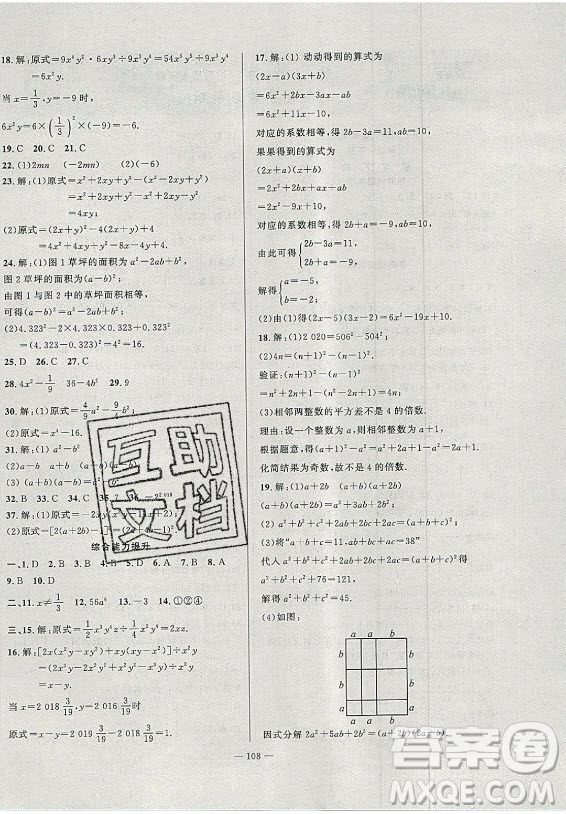 18. 解：原式＝9x⁴y²·6xy³÷9x³y⁴
＝54x⁵y⁵÷9x³y⁴
＝6x²y.
当 x＝1/3，y＝－9时，
6x²y＝6×(1/3)²×(－9)＝－6.
19. C 20. C 21. C
22. (1)2mn (2)(－6)
23. 解：(1)原式＝x²＋2xy＋y²－(x²－2xy＋y²)
＝x²＋2xy＋y²－x²＋2xy－y²
＝4xy；
(2)原式＝(2x＋y)²－4(2x＋y)＋4
＝4x²＋4xy＋y²－8x－4y＋4.
24. 解：(1)图1草坪的面积为 a²－2ab＋b²，
图2草坪的面积为(a－b)²；
由图1与图2中的草坪面积相等，
可得(a－b)²＝a²－2ab＋b²；
(2)4.323²－2×4.323×0.323＋0.323²
＝(4.323－0.323)²＝16.
25. D 26. C 27. C
28. 4x²－1/9 36－4b² 29. 9
30. 解：(1)原式＝4/9a²－b²；
(2)原式＝x⁴－1.
31. 解：(1)
(2)a－b a＋b (a＋b)(a－b)
32. B 33. C 34. C 35. 7 36. －
37. 解：(1)原式＝
(2)原式＝[2(a＋b)－1]²＝(2a＋2b－1)².
综合能力提升
一、1. D 2. C 3. B 4. B 5. D 6. A 7. B 8. A
9. B 10. D
二、11. x≠1/3 12. 56a⁶ 13. －3 14. ①②④
三、15. 解：原式＝
16. 解：[2x(x²y－xy²)＋xy(xy－x²)]÷x²y
＝x－y.
当 x＝2 018 3/19，y＝2 017 3/19时，
17. 解：(1)动动得到的算式为
(2x－a)(3x＋b)
＝6x²＋(2b－3a)x－ab
＝6x²＋11x－10，
对应的系数相等，得 2b－3a＝11，ab＝10，
果果得到的算式为
(2x＋a)(x＋b)
＝2x²＋(2b＋a)x＋ab
＝2x²－9x＋10，
对应的系数相等，得 2b＋a＝－9，ab＝10，
由此可得{2b－3a＝11，
2b＋a＝－9，
解得{a＝－5，
b＝－2.
(2)由(1)得(2x－5)(3x－2)＝6x²－19x＋10.
18. 解：(1)2 020＝506²－504².
(2)结论：(n＋1)²－(n－1)²＝4n.
验证：(n＋1)²－(n－1)²
＝n²＋2n＋1－(n²－2n＋1)＝4n.
(3)相邻两整数的平方差不是4的倍数.
理由：设一个整数为a，相邻的整数为a＋1，
根据题意，得(a＋1)²－a²＝2a＋1，
化简结果为奇数，故不是4的倍数.
19. 解：(1)(a＋2b)(a＋b)＝a²＋3ab＋2b².
(2)(a＋b＋c)²＝a²＋b²＋c²＋2ab＋2ac＋2bc.
(3)将“a＋b＋c＝11，ab＋bc＋ac＝38”
代入(a＋b＋c)²＝a²＋b²＋c²＋2ab＋2ac＋2bc得
a²＋b²＋c²＋76＝121，
解得 a²＋b²＋c²＝45.
(4)如图：
a a b
b b
a a
b b
a a b
因式分解 2a²＋5ab＋2b²＝(a＋2b)(2a＋b).
— 108 —
互助文档
答案圈
MXQE.COM